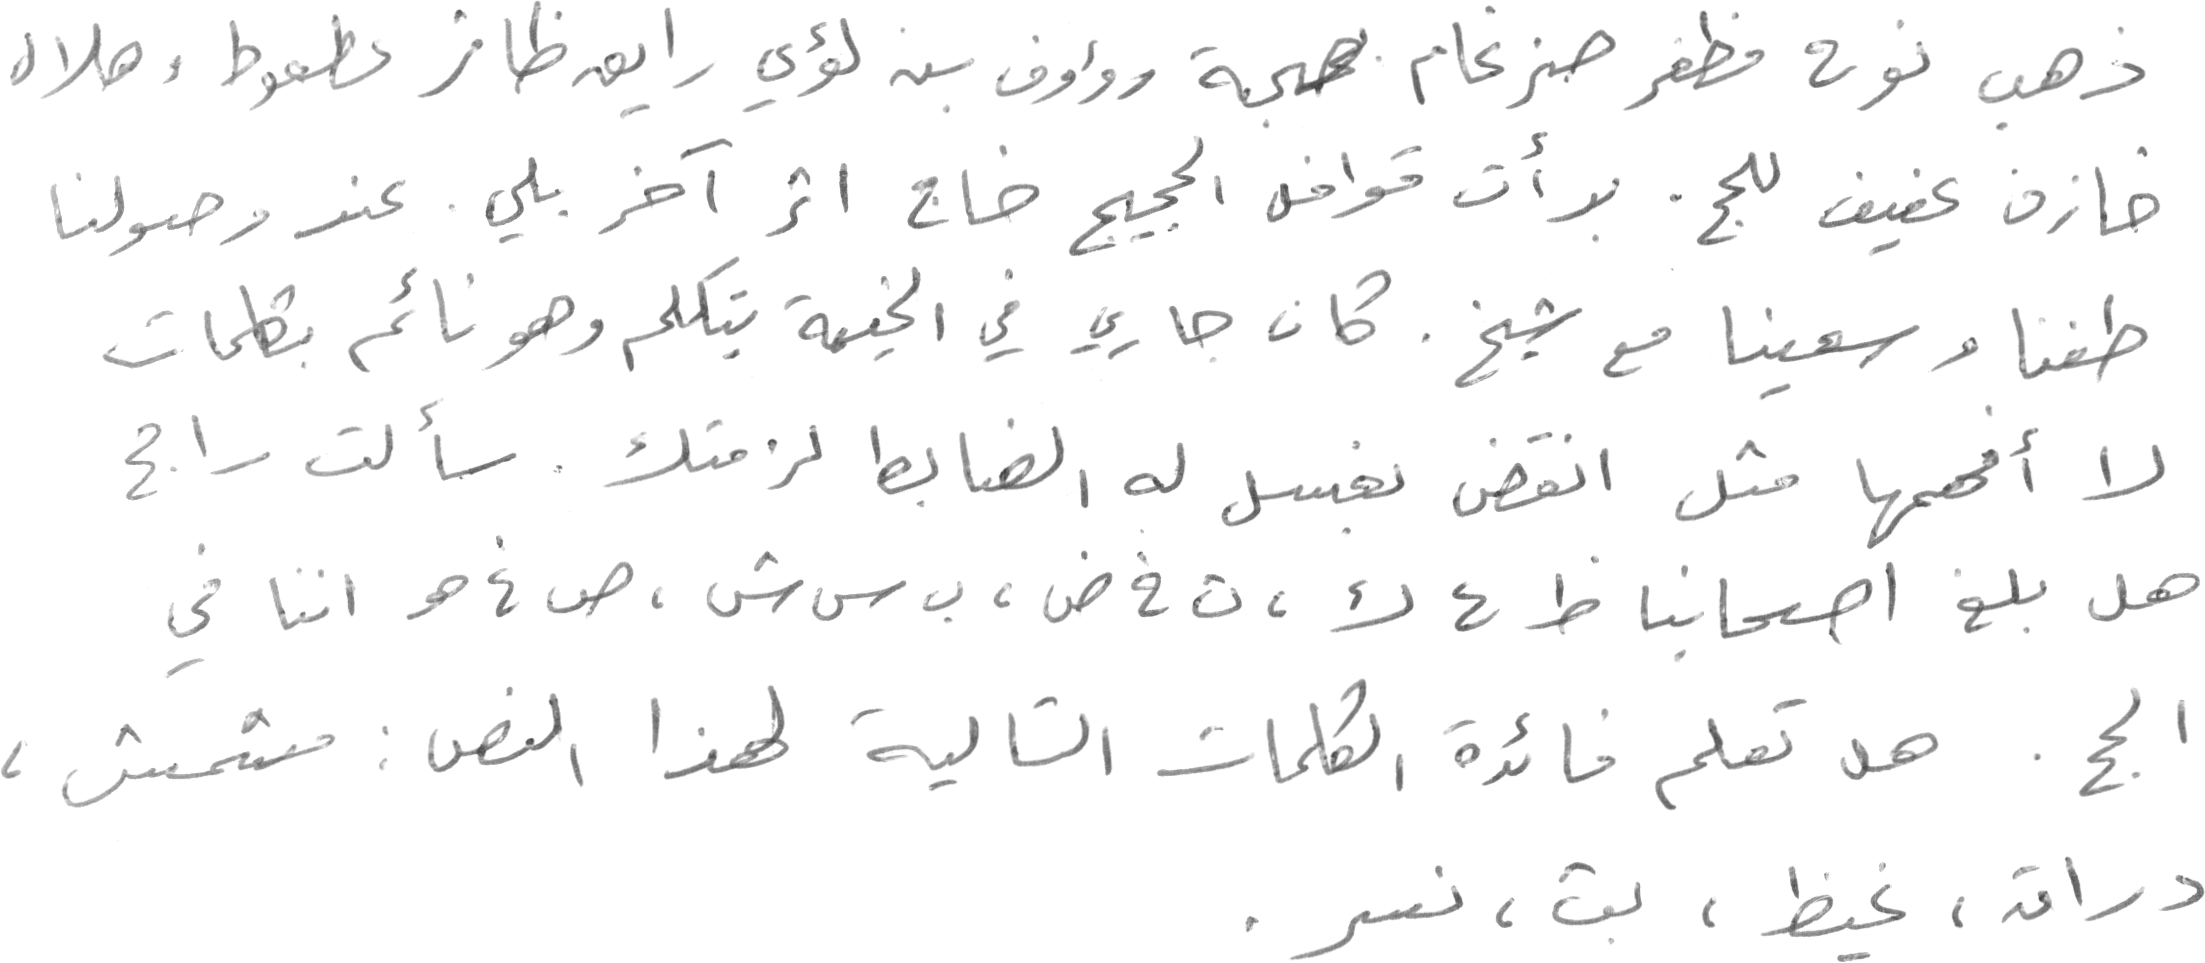 ذهب نوح مظفر ضرغام بصحبة رؤوف بن لؤي رايع ظافر عطعوط وهلال
خازن عفيف للحج. بدأت قوافل الحجيج خاج اثر آخر بلي. عند وصولنا
طفنا وسعينا مع شيخ. كان جاري في الخيمة يتكلم وهو نائم بكلمات
لا أفهمها مثل انقض نفسل له الضابط لزمتك. سألت راجح
هل بلغ اصحابنا ظ ع ك، ن غ ض، ب س ش، ص غ هو اننا في
الحج. هل تعلم فائدة الكلمات التالية لهذا النص: مشمش،
دراق، غيظ، بث، نسر.